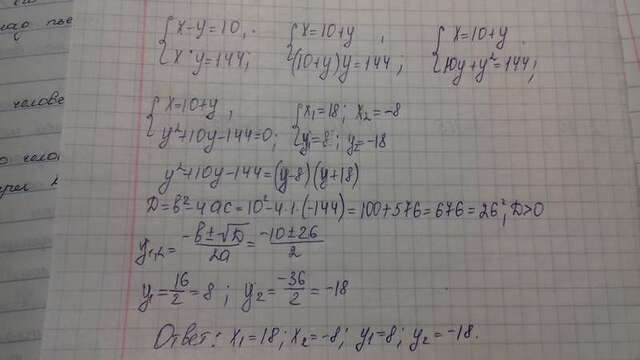 {x-y=10, {x=10+y, {x=10+y
{x·y=144; {(10+y)y=144; {10y+y²=144;
{x=10+y, {x₁=18; x₂=-8
{y²+10y-144=0; {y₁=8; y₂=-18
y²+10y-144=(y-8)(y+18)
D=b²-4ac=10²-4·1·(-144)=100+576=676=26², D>0
y₁,₂= (-b±√D)/2a = (-10±26)/2
y₁=16/2=8; y₂=-36/2=-18
Ответ: x₁=18; x₂=-8; y₁=8; y₂=-18.